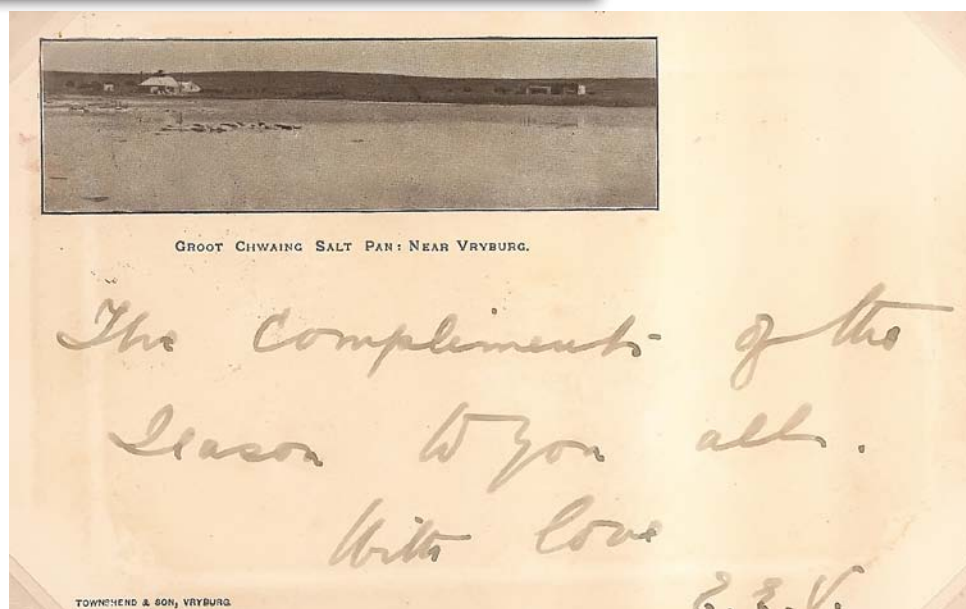 GROOT CHWAING SALT PAN: NEAR VRYBURG.
The Compliments of the
Season to you all.
With love
E. E. V.
TOWNSHEND & SON, VRYBURG